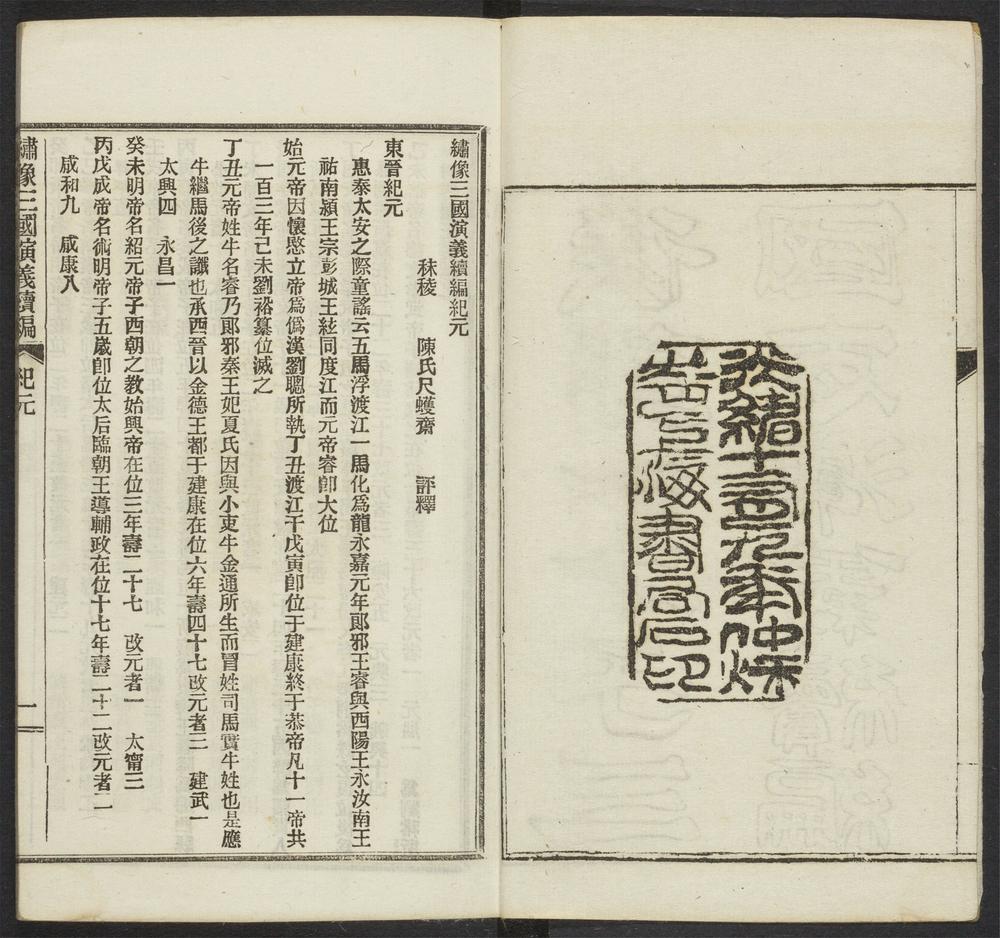 光緒十有九年仲秌
上海書局石印
繡像三國演義續編紀元
秣稜 陳氏尺蠖齋 評釋
東晉紀元
惠泰太安之際童謠云五馬浮渡江一馬化爲龍永嘉元年郎邪王睿與西陽王永汝南王
祐南潁王宗彭城王絃同度江而元帝睿卽大位
始元帝因懷愍立帝爲僞漢劉聰所執丁丑渡江于戊寅卽位于建康終于恭帝凡十一帝共
一百三年己未劉裕篡位滅之
丁丑元帝姓牛名睿乃郎邪秦王妃夏氏因與小吏牛金通所生而冒姓司馬實牛姓也是應
牛繼馬後之讖也承西晉以金德王都于建康在位六年壽四十七改元者三 建武一
太興四 永昌一
癸未明帝名紹元帝子西朝之教始興帝在位三年壽二十七 改元者一 太甯三
丙戌成帝名衍明帝子五歲卽位太后臨朝王導輔政在位十七年壽二十二改元者二
咸和九 咸康八
繡像三國演義續編 紀元 一